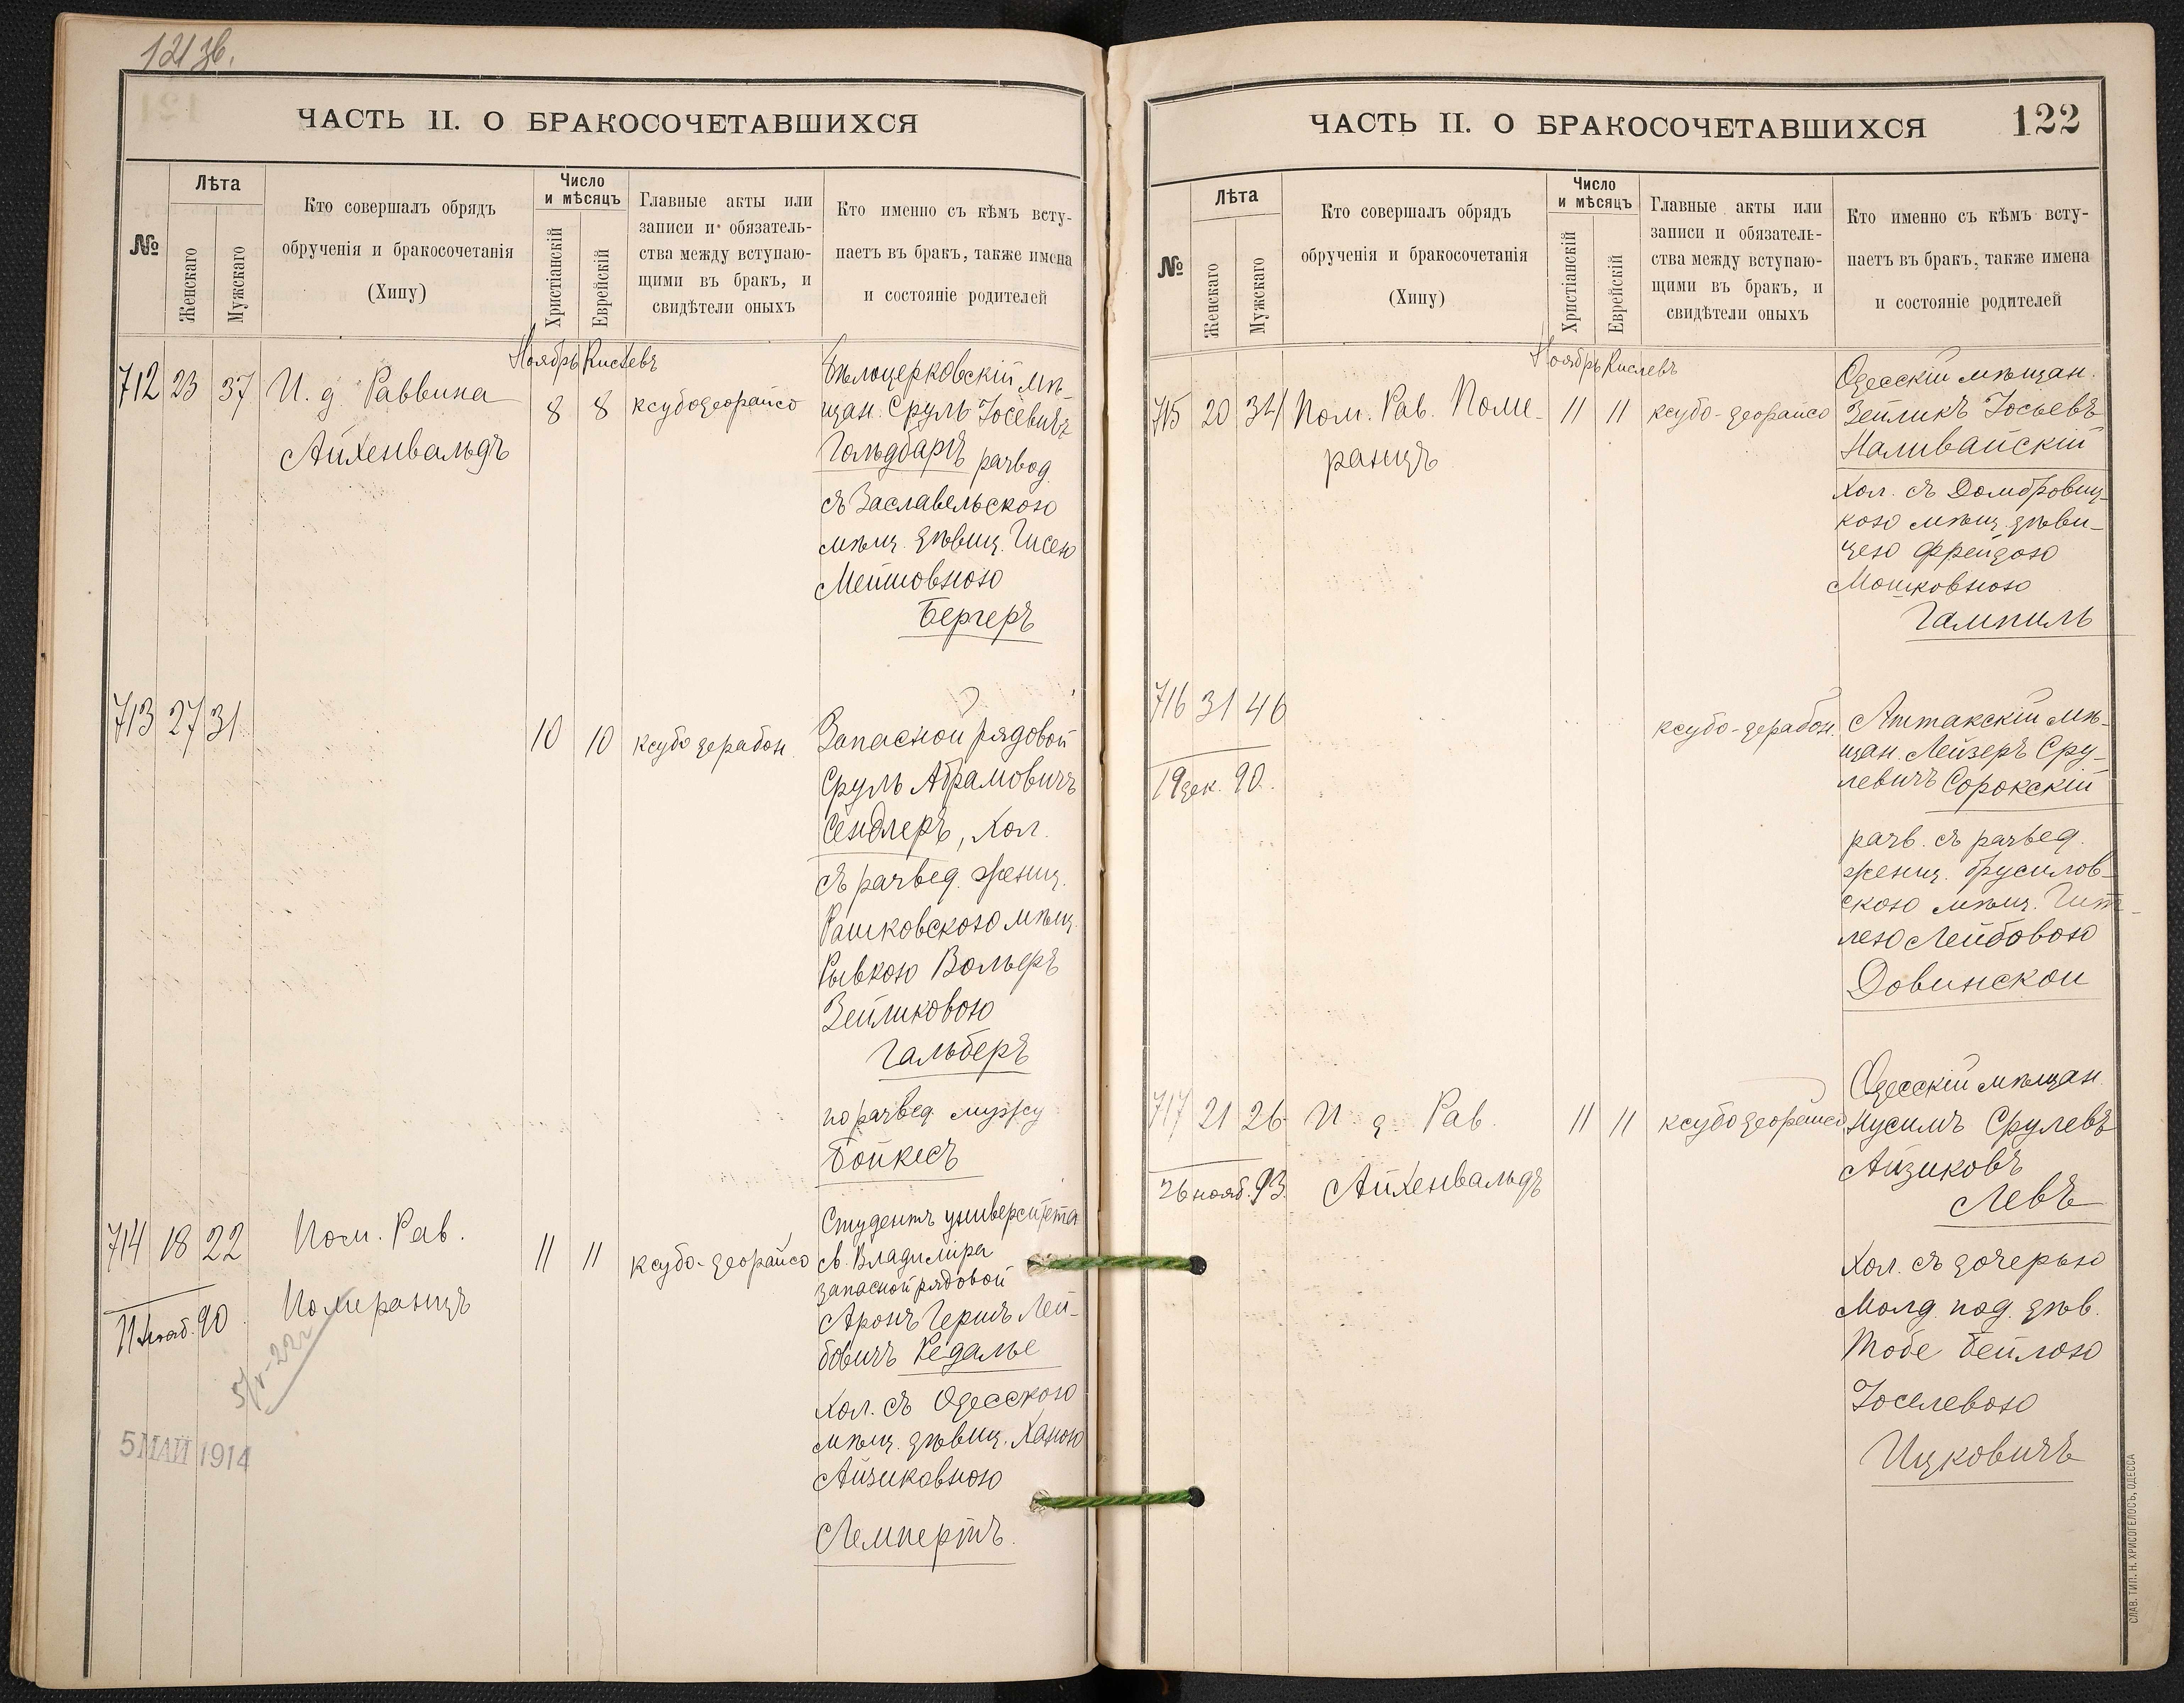 121 зв.
ЧАСТЬ II. О БРАКОСОЧЕТАВШИХСЯ
№
Лѣта
Женскаго
Мужскаго
Кто совершалъ обрядъ
обрученія и бракосочетанія
(Хипу)
Число
и мѣсяцъ
Христіанскій
Еврейскій
Главные акты или
записи и обязатель-
ства между вступаю-
щими въ бракъ, и
свидѣтели оныхъ
Кто именно съ кѣмъ всту-
паетъ въ бракъ, также имена
и состояніе родителей
Ноябрь Кислевъ
712 23 37
И. д. Раввина
Айхенвальдъ
8 8
ксубо деорайсо
Бѣлоцерковскій мѣ-
щан. Сруль Іосевичъ
Гольдбартъ развод.
съ Заславельскою
мѣщ. дѣвиц. Гисею
Мейшовною
Бергеръ
713 27 31
10 10
ксубо дерабон.
Запасной рядовой
Сруль Абрамовичъ
Сендлеръ, хол.
съ развед. женщ.
Рашковскою мѣщ.
Рывкою Вольеръ
Зейликовою
Гальберъ
по развед. мужу
Бойкесъ
714 18 22
Пом. Рав.
Померанцъ
11 11
ксубо-деорайсо
Студентъ университета
св. Владиміра
запасной рядовой
Аронъ Гершъ Лей-
бовичъ Редалье
хол. съ Одесскою
мѣщ. дѣвиц. Ханою
Айзиковною
Лемпертъ.
11 нояб. 90
5/V-22 г
5 МАЙ 1914
ЧАСТЬ II. О БРАКОСОЧЕТАВШИХСЯ
122
№
Лѣта
Женскаго
Мужскаго
Кто совершалъ обрядъ
обрученія и бракосочетанія
(Хипу)
Число
и мѣсяцъ
Христіанскій
Еврейскій
Главные акты или
записи и обязатель-
ства между вступаю-
щими въ бракъ, и
свидѣтели оныхъ
Кто именно съ кѣмъ всту-
паетъ въ бракъ, также имена
и состояніе родителей
Ноябрь Кислевъ
715 20 34
Пом. Рав. Поме-
ранцъ
11 11
ксубо-деорайсо
Одесскій мѣщан.
Зейликъ Іосьевъ
Наливайскій
хол. съ Домбровиц-
кою мѣщ. дѣви-
цею Фрейдою
Мошковною
Гампиль
716 31 46
19 дек. 90.
ксубо-дерабон.
Аттакскій мѣ-
щан. Лейзеръ Сру-
левичъ Сорокскій
разв. съ развед.
женщ. Брусилов-
скою мѣщ. Гит-
лею Лейбовою
Довинской
717 21 26
И д Рав.
Айхенвальдъ
11 11
ксубо деорайсо
Одесскій мѣщан.
Нусимъ Срулевъ
Айзиковъ
Левъ
хол. съ дочерью
Молд. под. дѣв.
Тобе Бейлою
Іоселевою
Ицковичъ
26 нояб. 93.
СЛАВ. ТИП. Н. ХРИСОГЕЛОСЪ, ОДЕССА